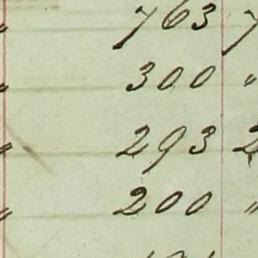 " 763 7
" 300 "
" 293 2
" 200 "